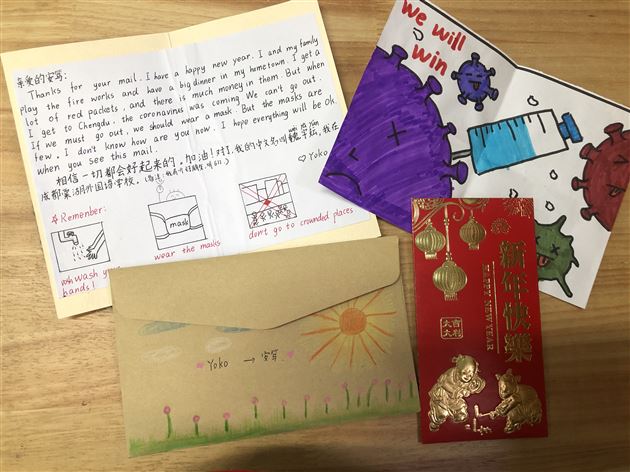 亲爱的安写:
Thanks for your mail. I have a happy new year. I and my family
play the fire works and have a big dinner in my hometown. I get a
lot of red packets, and there is much money in them. But when
I get to Chengdu, the coronavirus was coming. We can't go out.
If we must go out, we should wear a mask. But the masks are
few. I don't know how are you now. I hope everything will be ok.
when you see this mail.
相信一切都会好起来的,加油!对了,我的中文名叫魏宇
成都棠湖外国语学校,
♡ Yoko
Remenber:
wash your
hands!
mask
wear the masks
don't go to crounded places
We will
win
Yoko → 安写
新年快樂
HAPPY NEW YEAR
大吉
大利